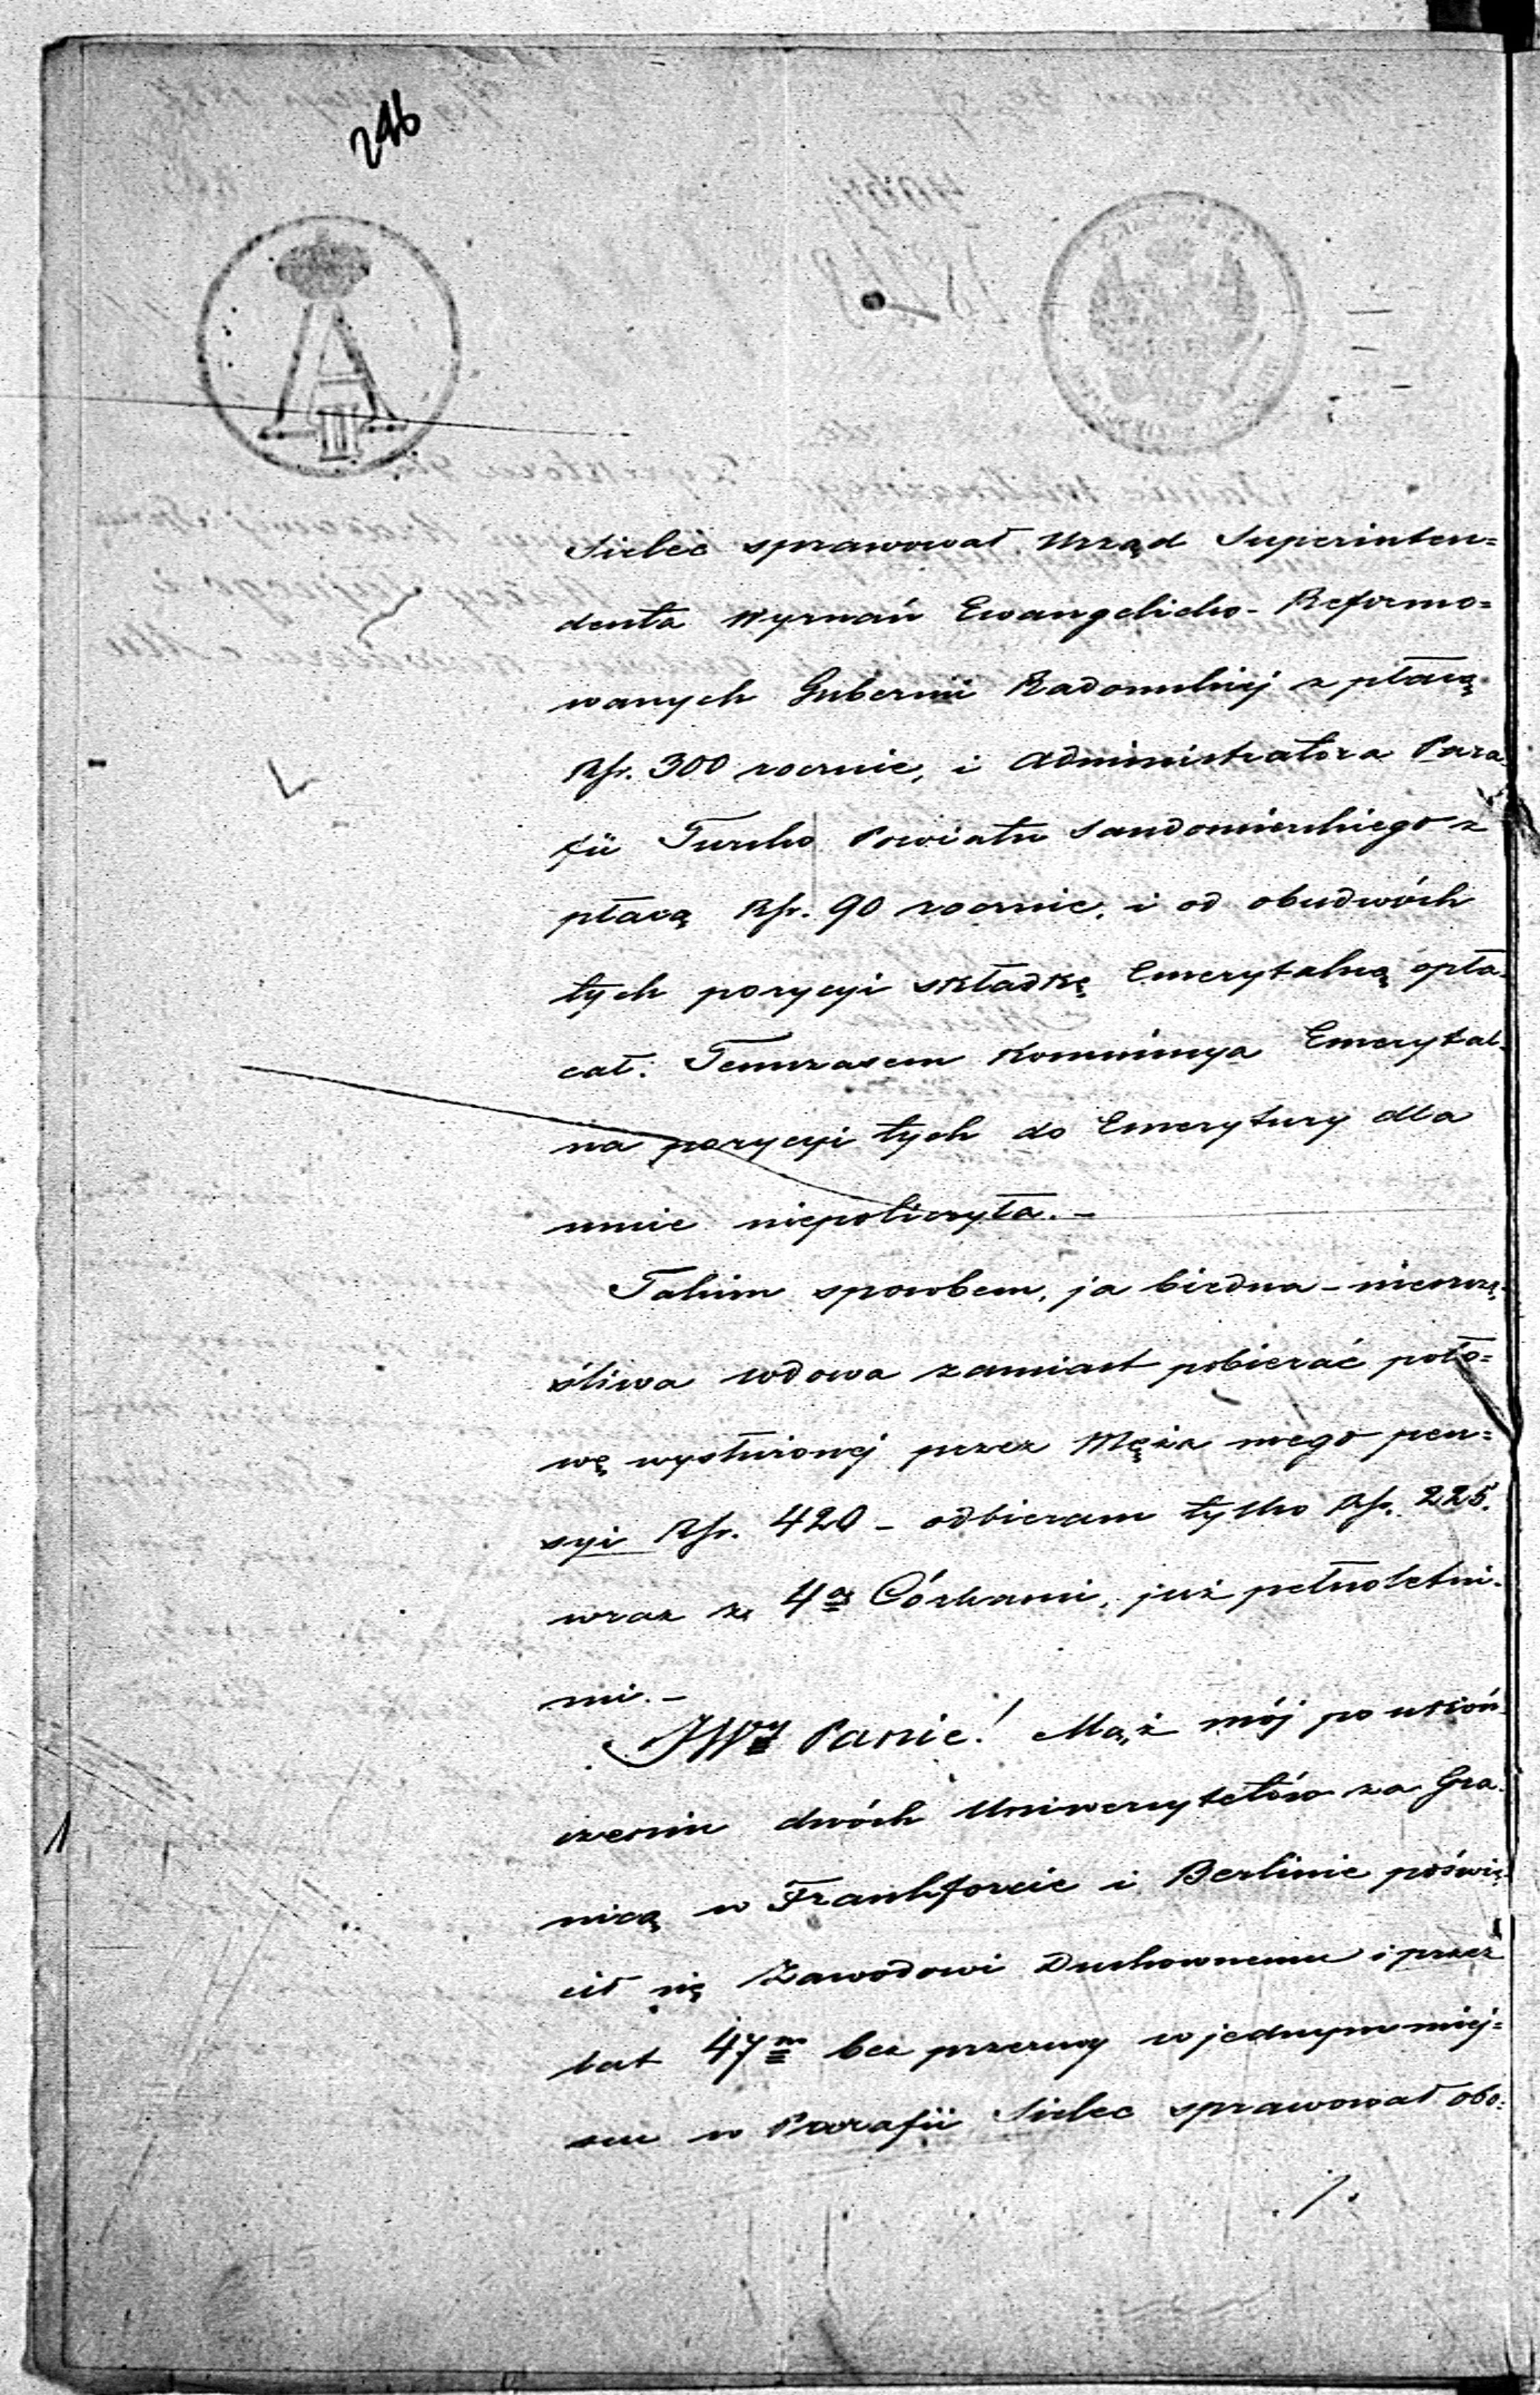 246
A III
Sielec sprawował Urząd Superinten=
denta Wyznań Ewangelicko-Reformo=
wanych Gubernii Radomskiej z płacą
Rsr. 300 rocznie, i Administratora Para
fii Tursko Powiatu Sandomierskiego z
płacą Rsr. 90 rocznie, i od obudwóch
tych pozycyi składkę Emerytalną opła-
cał. Temczasem Kommissya Emerytal-
na pozycyi tych do Emerytury dla
mnie niepoliczyła. -
Takim sposobem, ja biedna - nieszczę-
śliwa wdowa zamiast pobierać poło=
wę wysłużonej przez Męża mego pen=
syi Rsr. 420 - odbieram tylko Rsr. 225.
wraz z 4a Córkami, już pełnoletni-
mi. -
JWy Panie! Mąż mój po ukoń-
czeniu dwóch Uniwersytetów za Gra-
nicą w Frankforcie i Berlinie poświę-
cił się Zawodowi Duchownemu i przez
lat 47m bez przerwy w jednym miej=
scu w Parafii Sielec sprawował obo=
./.